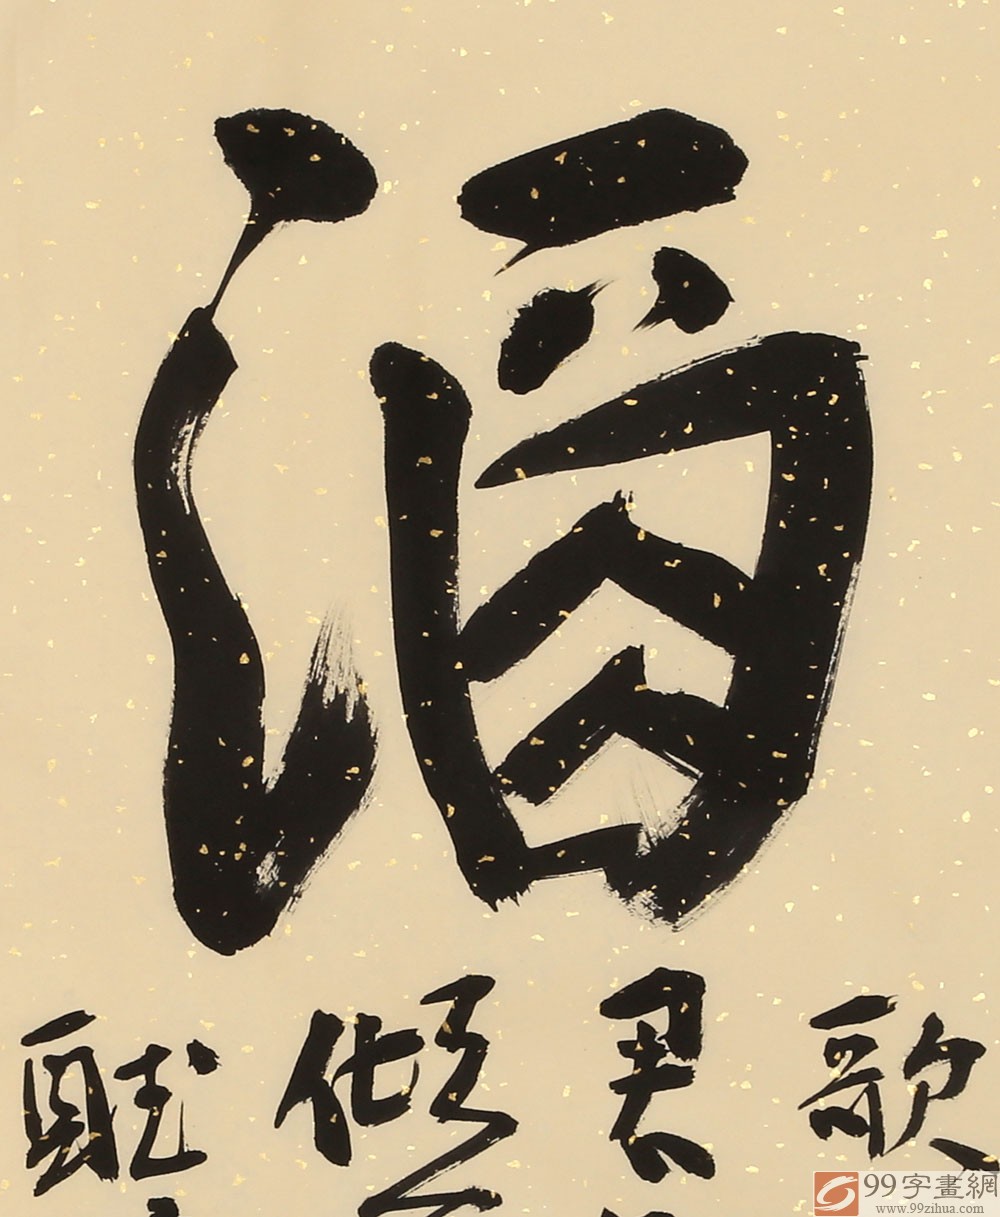 酒
歌
君
倾
99字畫網
www.99zihua.com